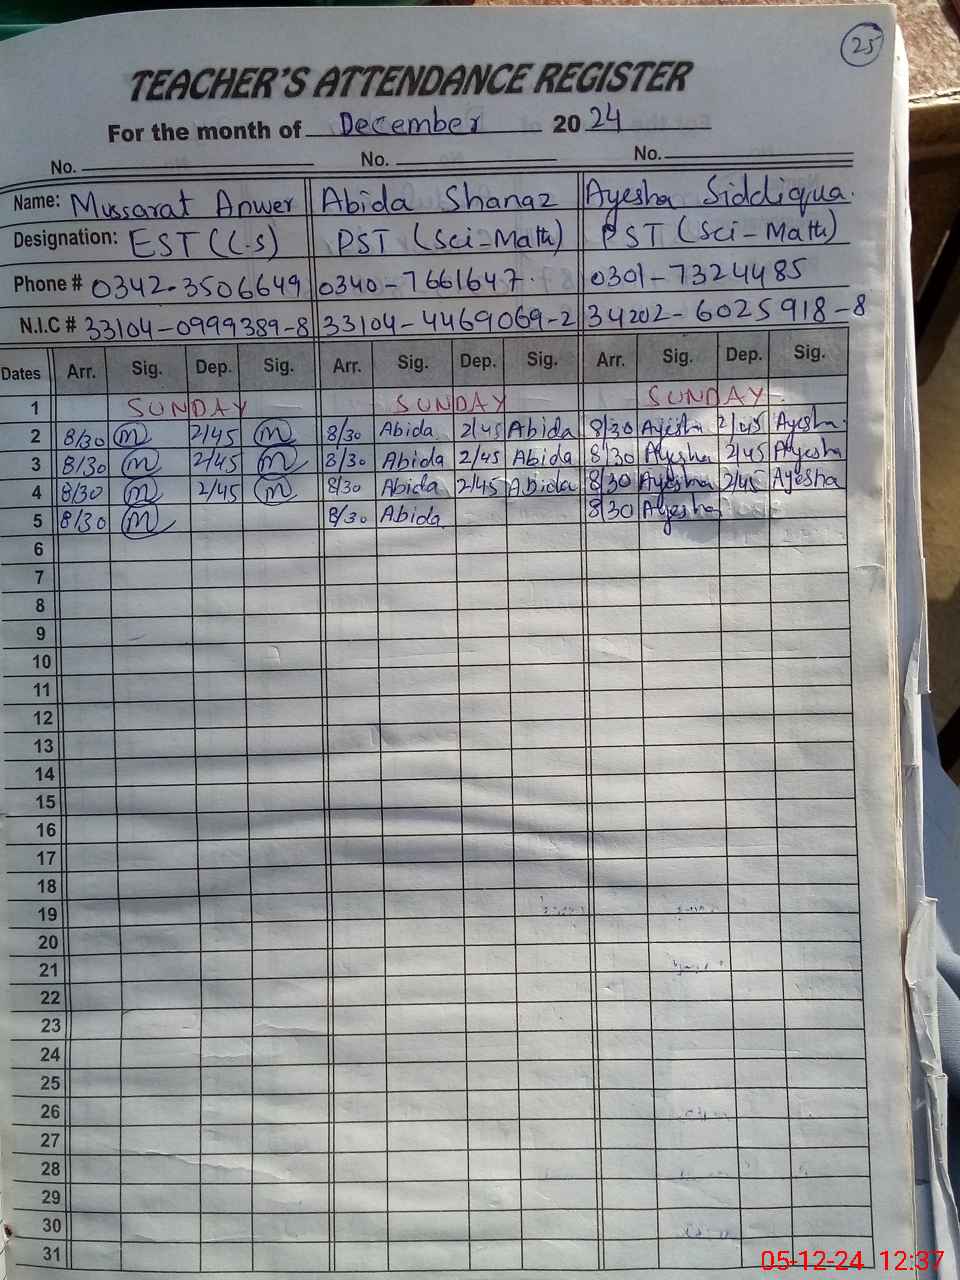 25
TEACHER'S ATTENDANCE REGISTER
For the month of December 2024
No. No. No.
Name: Mussarat Anwer Abida Shanaz Ayesha Siddiqua.
Designation: EST (C.S) PST (Sci-Math) PST (Sci-Math)
Phone # 0342-3506649 0340-7661647. 0301-7324485
N.I.C # 33104-0999389-8 33104-4469069-2 34202-6025918-8
Dates Arr. Sig. Dep. Sig. Arr. Sig. Dep. Sig. Arr. Sig. Dep. Sig.
1 SUNDAY SUNDAY SUNDAY
2 8/30 m 2/45 m 8/30 Abida 2/45 Abida 8/30 Ayesha 2/45 Ayesha
3 8/30 m 2/45 m 8/30 Abida 2/45 Abida 8/30 Ayesha 2/45 Ayesha
4 8/30 m 2/45 m 8/30 Abida 2/45 Abida 8/30 Ayesha 2/45 Ayesha
5 8/30 m 8/30 Abida 8/30 Ayesha
6
7
8
9
10
11
12
13
14
15
16
17
18
19
20
21
22
23
24
25
26
27
28
29
30
31
05-12-24 12:37